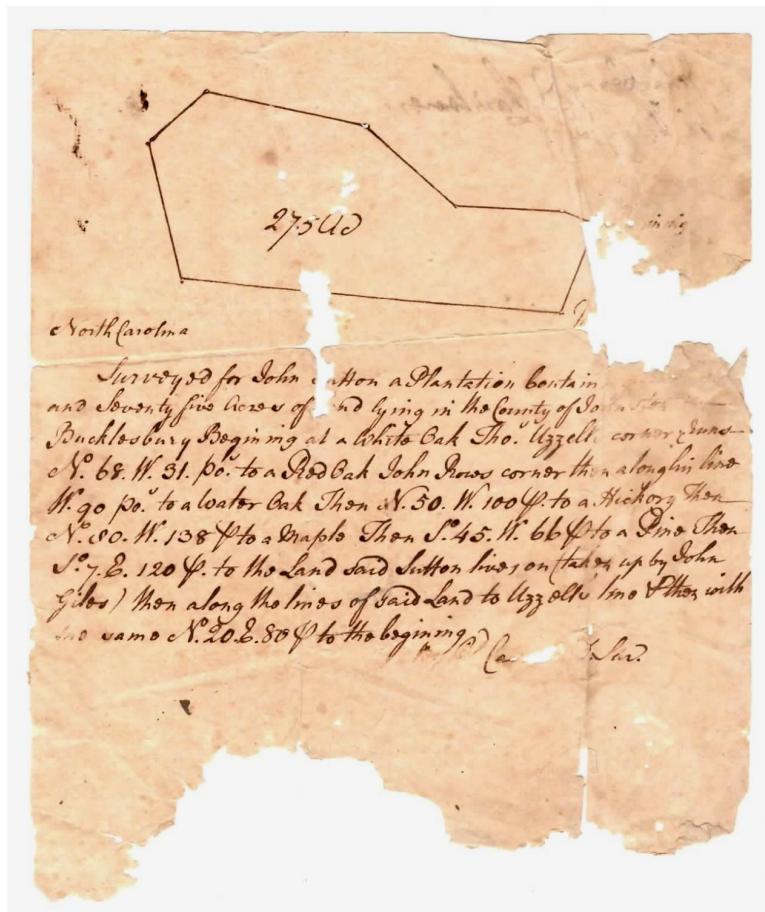 275 Ac
North Carolina
Surveyed for John Sutton a Plantation
and Seventy five Acres of lying in the County of
Bucklesbury Begining at a White Oak Tho.s Uzzells corner & runs
N.o 68. W. 31. po.s to a Red Oak John Rows corner then along his line
W. 90 po.s to a Water Oak Then N. 50. W. 100 p. to a Hickory Then
N.o 80. W. 138 p to a Maple Then S.o 45. W. 66 p to a Pine Then
S.o 7. E. 120 p. to the Land said Sutton lives on (taken up by John
Giles) then along the lines of said Land to Uzzells line & then with
the same N.o 20. E. 80 p to the begining
Sur.